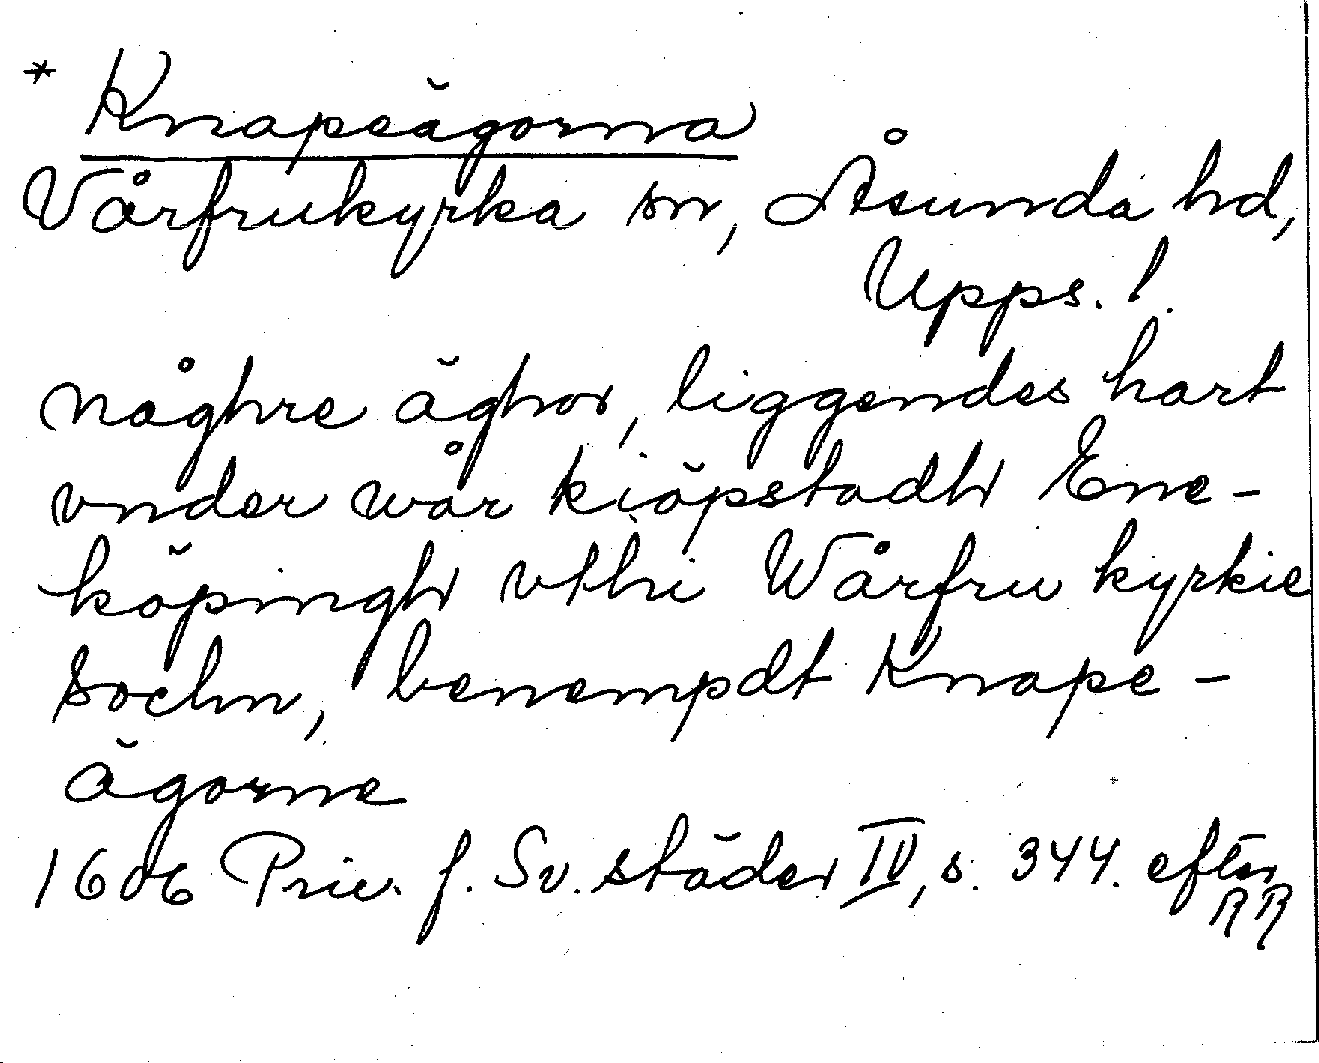 * Knapeägorna
Vårfrukyrka sn, Åsunda hd,
Upps. l.
någhre äghor, liggendes hart
vnder wår kiöpstadh Ene-
köpingh vthi Wårfru kyrkie
sochn, benempdt Knape-
ägorne
1606 Priv. f. Sv. städer IV, s. 344. efter
RR